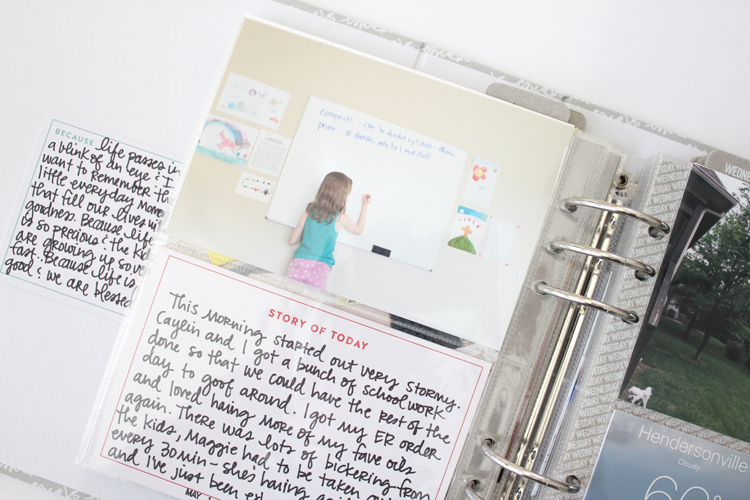 BECAUSE life passes in
a blink of an eye & I
want to remember the
little everyday
that fill our lives w
goodness. Because life
is so precious & the kids
are growing up so
fast. Because life is
good & we are blessed
composite - can be divided by
prime - divisible only by 1 and itself
STORY OF TODAY
This morning started out very stormy.
Caylein and I got a bunch of schoolwork
done so that we could have the rest of the
day to goof around. I got my ER order
and loved having more of my fave oils
again. There was lots of bickering from
the kids, Maggie had to be taken
every 30min - she's having
and I've just been
MAY
WEDNESDAY
Hendersonville
Cloudy